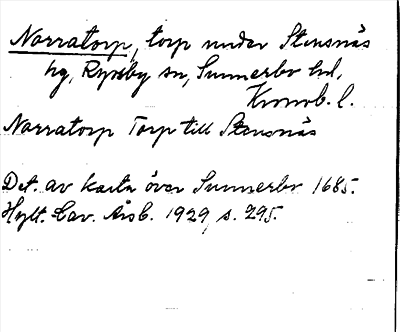 Norratorp, torp under Stensnäs
hg, Ryssby sn, Sunnerbo hd,
Kronob. l.
Norratorp Torp till Stensnäs
Det. av karta över Sunnerbo 1685.
Hylt. Cav. Årsb. 1929, s. 295.